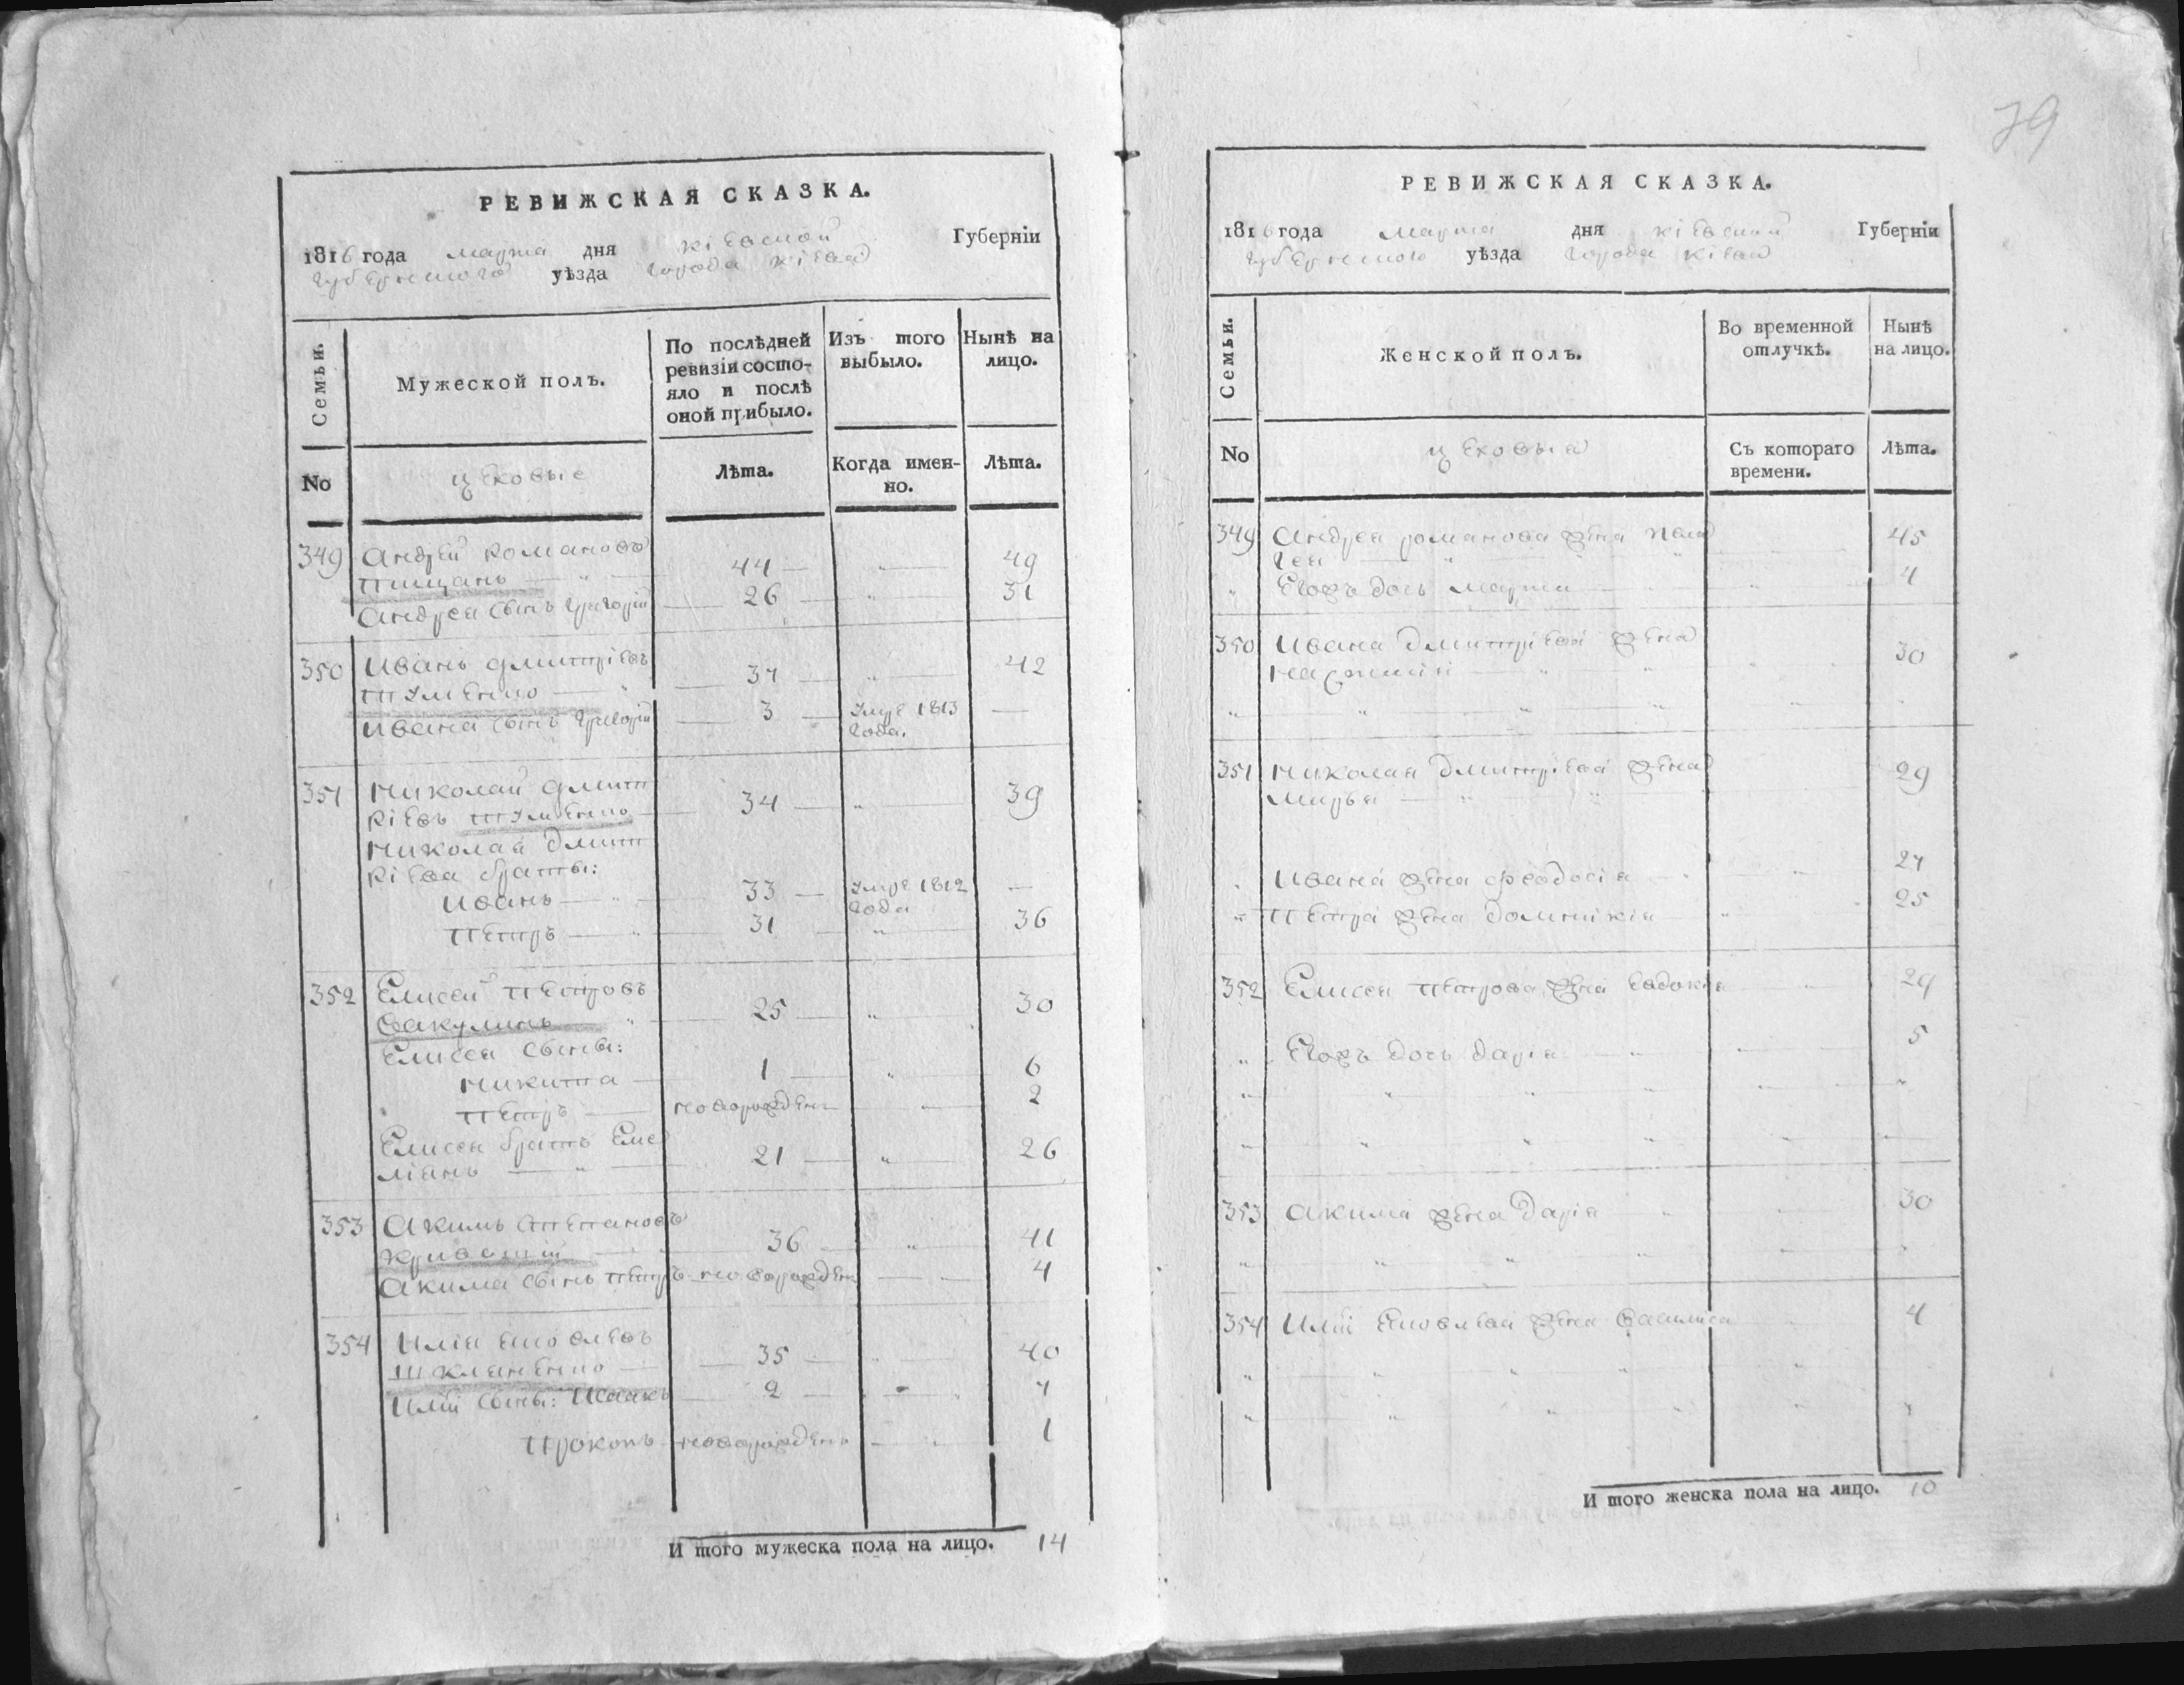 79
РЕВИЖСКАЯ СКАЗКА.
1816 года марта дня кіевской Губерніи
губернского уѣзда города кіева
Семьи.
Мужеской полъ.
По послѣдней
ревизіи состо-
яло и послѣ
оной прибыло.
Изъ того
выбыло.
Нынѣ на
лицо.
No
цеховые
Лѣта.
Когда имен-
но.
Лѣта.
349 Андрей романовъ
44 — " — 49
Андрея сынъ григорій — 26 — " — 31
350 Иванъ дмитріевъ
— " — 37 — " — 42
Ивана сынъ григорій — 3 — умре 1813 —
года.
351 Николай дмит
ріевъ тименко — 34 — " — 39
Николая дмит
ріева браты:
Иванъ — " — 33 — умре 1812 —
года
петръ — " — 31 — " — 36
352 Елисей петровъ
вакулинъ — " — 25 — " — 30
Елисея сыны:
никита — 1 — " — 6
петръ — новорожденъ — 2
Елисея братъ Еме
ліянъ — " — 21 — " — 26
353 Акимъ степановъ
36 — " — 41
Акима сынъ петръ новорожден — 4
354 Илія яковлевъ
шкляненко — 35 — 40
Иліи сыны: Исаакъ — 2 — " 7
прокопъ новорожденъ — 1
И того мужеска пола на лицо. 14
РЕВИЖСКАЯ СКАЗКА.
1816 года марта дня кіевской Губерніи
губернского уѣзда города кіева
Семьи.
Женской полъ.
Во временной
отлучкѣ.
Нынѣ
на лицо.
No
цеховыя
Съ котораго
времени.
Лѣта.
349 Андрея романова жена пела
гея — " 45
" Егожъ дочь марта — " 4
350 Ивана дмитріева жена
30
351 Николая дмитріева жена
марья — " 29
" Ивана жена феодосія — " 27
" петра жена домникія — " 25
352 Елисея петрова жена евдокія — " 29
" Егожъ дочь дарія — " 5
353 Акима жена дарія — " 30
354 Иліи яковлева жена василиса 4
И того женска пола на лицо. 10